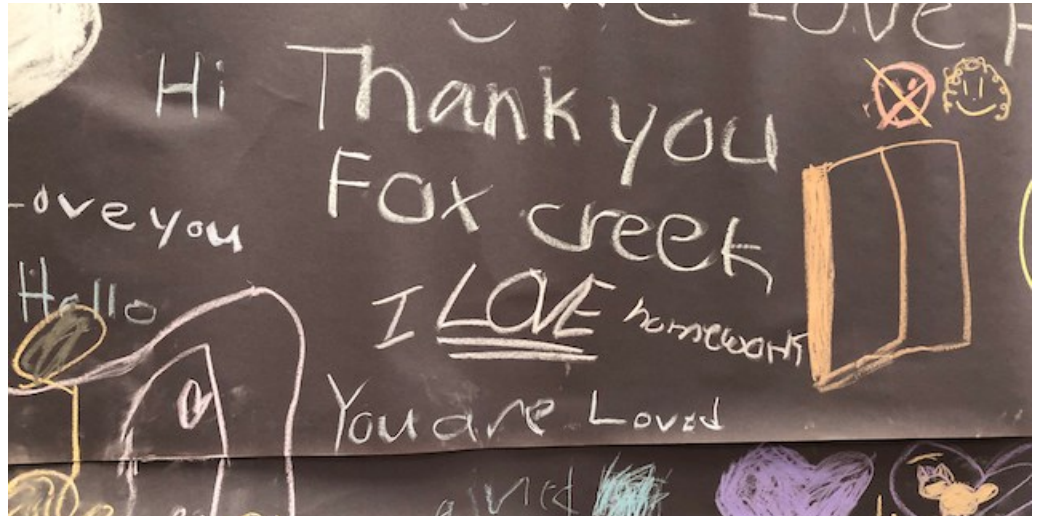 We Love
Hi
Thank you
Fox creek
Love you
Hello
I LOVE homework
You are Loved